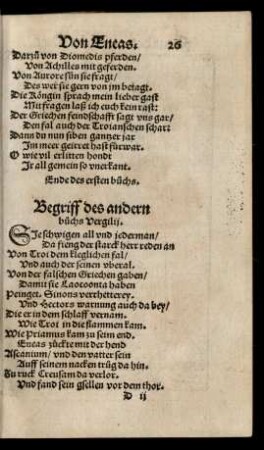 Von Eneas. 26
Darzů von Diomedis pferden/
Von Achilles mit geferden.
Von Aurore sün sie fragt/
Des wer sie gern von im betagt.
Die Köngin sprach mein lieber gast
Mit fragen laß ich euch kein rast:
Der Griechen feindschafft sagt vns gar/
Den fal auch der Troianschen schar:
Dann da nun siben gantzer jar
Im meer geirret hast fürwar.
O wie vil erlitten hondt
Ir all gemein so vnerkant.
Ende des ersten bůchs.
Begriff des andern
bůchs Vergilij.
SIe schwigen all vnd jederman/
Da fieng der starck herr reden an
Von Troi dem kleglichen fal/
Vnd auch der seinen vberal.
Von der falschen Griechen gaben/
Damit sie Laocoonta haben
Peinget. Sinons verrhetterey.
Vnd Hectors warnung auch da bey/
Die er in dem schlaff vernam.
Wie Troi in die flammen kam.
Wie Priamus kam zu seim end.
Eneas zückte mit der hend
Ascanium/ vnd den vatter sein
Auff seinem nacken trůg da hin.
Zu ruck Creusam da verlor.
Vnd fand sein gsellen vor dem thor.
D ij